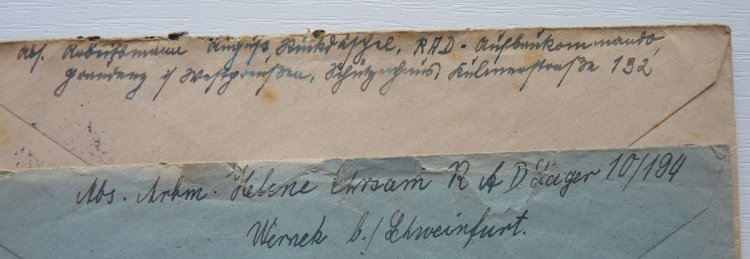 Abs. Arbeitsmann August Rückdäschel, RAD-Aufbaukommando,
Graudenz i/ Westpreußen, Schützenhaus, Kulmerstraße 192
Abs. Arbm. Helene Ehrsam R A D Lager 10/194
Wernek b./ Schweinfurt.